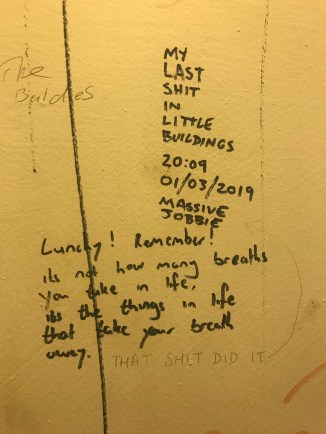 The
Baldies
MY
LAST
SHIT
IN
LITTLE
BUILDINGS
20:09
01/03/2019
MASSIVE
JOBBIE
Lunchy! Remember!
its not how many breaths
you take in life,
its the things in life
that take your breath
away.
THAT SHIT DID IT